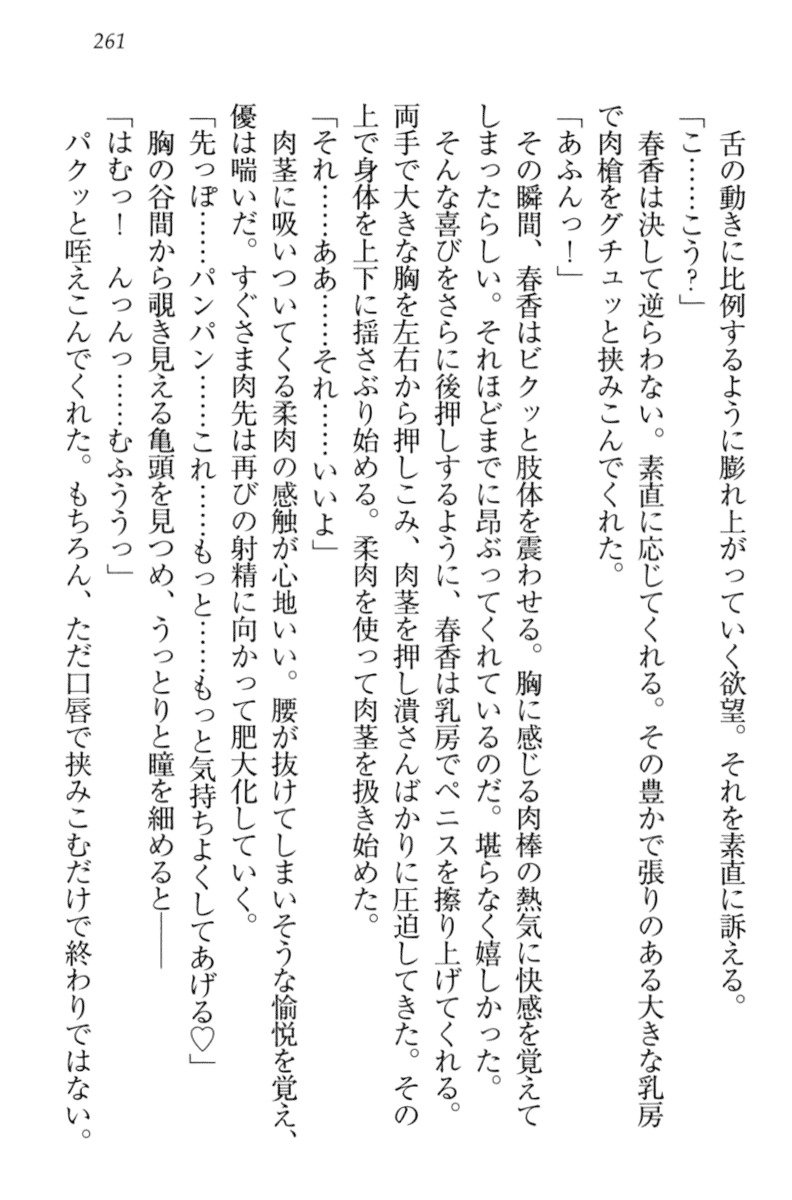 261
舌の動きに比例するように膨れ上がっていく欲望。それを素直に訴える。
「こ……こう？」
春香は決して逆らわない。素直に応じてくれる。その豊かで張りのある大きな乳房
で肉槍をグチュッと挟みこんでくれた。
「あふんっ！」
その瞬間、春香はビクッと肢体を震わせる。胸に感じる肉棒の熱気に快感を覚えて
しまったらしい。それほどまでに昂ぶってくれているのだ。堪らなく嬉しかった。
そんな喜びをさらに後押しするように、春香は乳房でペニスを擦り上げてくれる。
両手で大きな胸を左右から押しこみ、肉茎を押し潰さんばかりに圧迫してきた。その
上で身体を上下に揺さぶり始める。柔肉を使って肉茎を扱き始めた。
「それ……ああ……それ……いいよ」
肉茎に吸いついてくる柔肉の感触が心地いい。腰が抜けてしまいそうな愉悦を覚え、
優は喘いだ。すぐさま肉先は再びの射精に向かって肥大化していく。
「先っぽ……パンパン……これ……もっと……もっと気持ちよくしてあげる♡」
胸の谷間から覗き見える亀頭を見つめ、うっとりと瞳を細めると――
「はむっ！　んっんっ……むふううっ」
パクッと咥えこんでくれた。もちろん、ただ口唇で挟みこむだけで終わりではない。